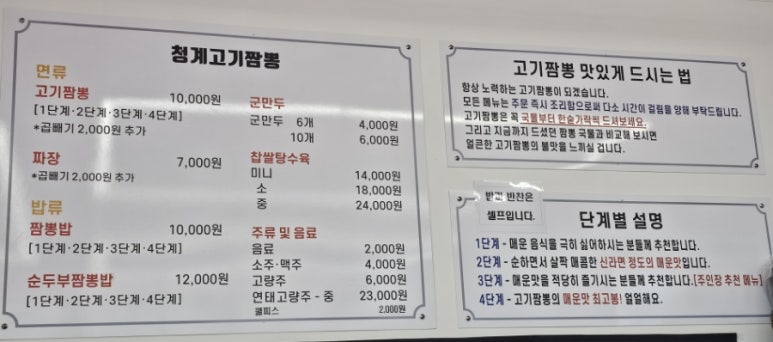 청계고기짬뽕
면류
고기짬뽕 10,000원
[1단계·2단계·3단계·4단계]
*곱빼기 2,000원 추가
짜장 7,000원
*곱빼기 2,000원 추가
밥류
짬뽕밥 10,000원
[1단계·2단계·3단계·4단계]
순두부짬뽕밥 12,000원
[1단계·2단계·3단계·4단계]
군만두
군만두 6개 4,000원
10개 6,000원
찹쌀탕수육
미니 14,000원
소 18,000원
중 24,000원
주류 및 음료
음료 2,000원
소주·맥주 4,000원
고량주 6,000원
연태고량주 - 중 23,000원
쿨피스 2,000원
고기짬뽕 맛있게 드시는 법
항상 노력하는 고기짬뽕이 되겠습니다.
모든 메뉴는 주문 즉시 조리함으로써 다소 시간이 걸림을 양해 부탁드립니다.
고기짬뽕은 꼭 국물부터 한숟가락씩 드셔보세요.
그리고 지금까지 드셨던 짬뽕 국물과 비교해 보시면
얼큰한 고기짬뽕의 불맛을 느끼실 겁니다.
반찬은
셀프입니다.
단계별 설명
1단계 - 매운 음식을 극히 싫어하시는 분들께 추천합니다.
2단계 - 순하면서 살짝 매콤한 신라면 정도의 매운맛입니다.
3단계 - 매운맛을 적당히 즐기시는 분들께 추천합니다.[주인장 추천 메뉴]
4단계 - 고기짬뽕의 매운맛 최고봉! 얼얼해요.